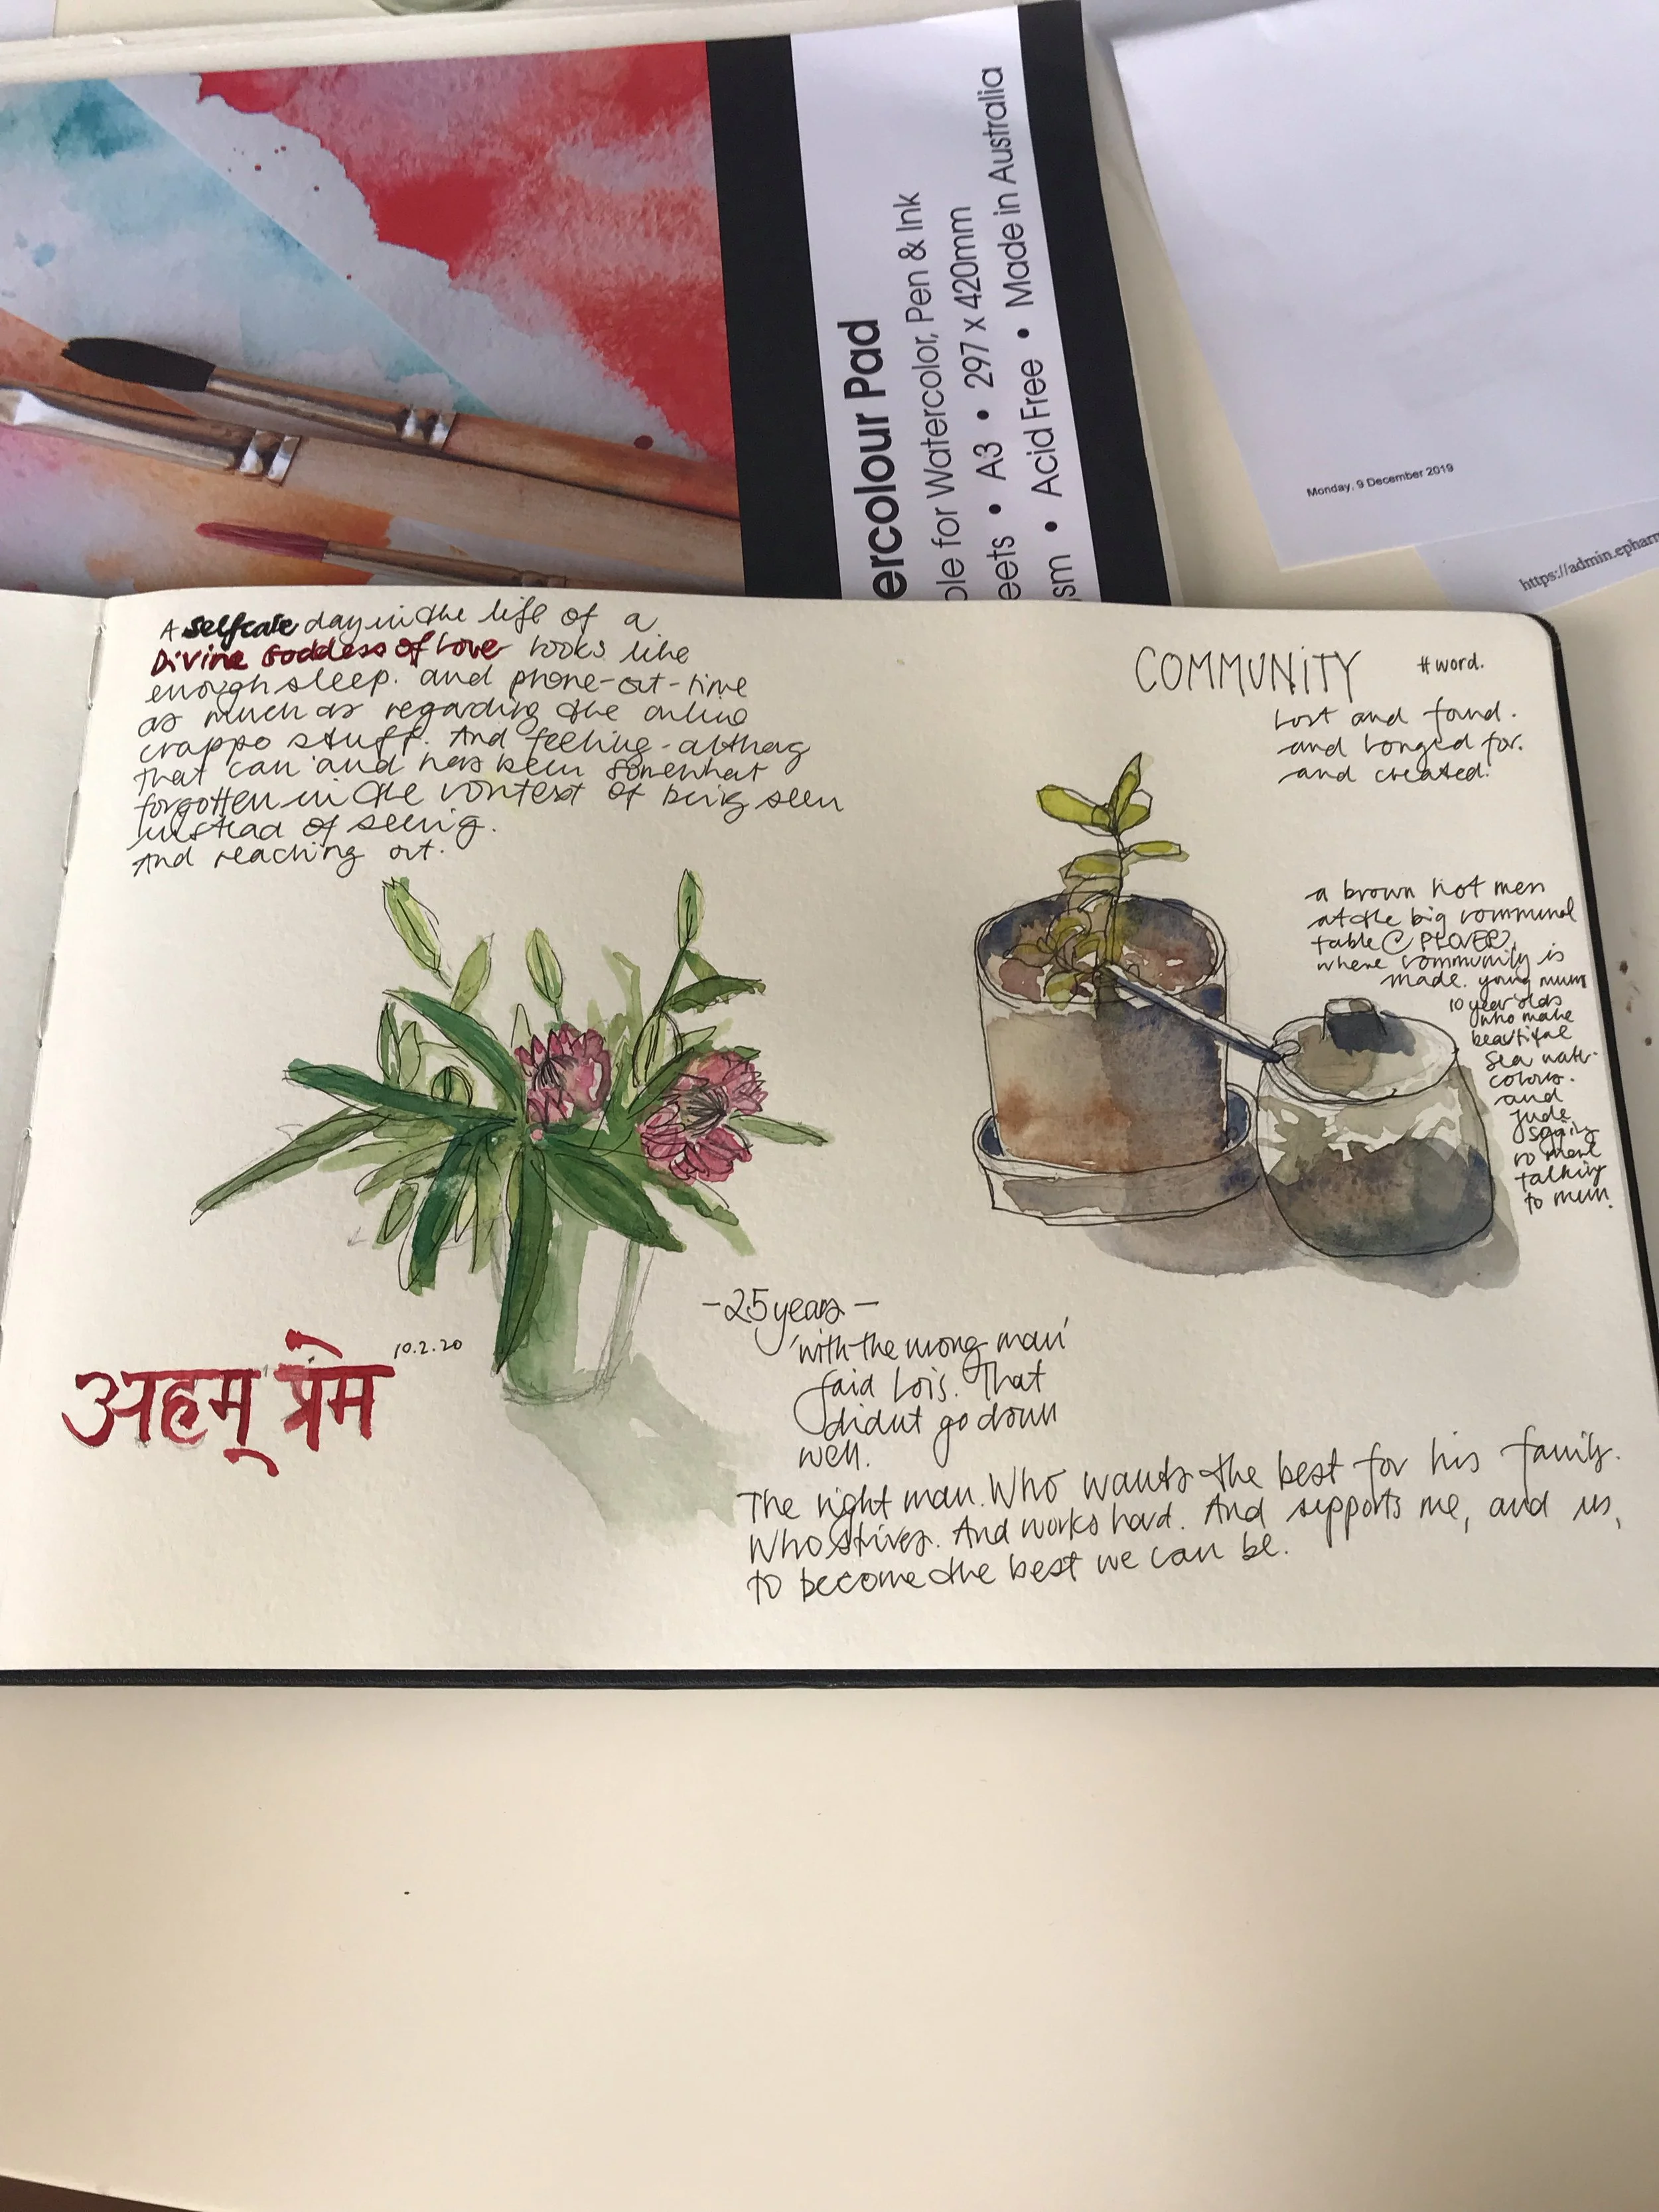 ercolour Pad
ble for Watercolor, Pen & Ink
eets • A3 • 297 x 420mm
sm • Acid Free • Made in Australia
Monday, 9 December 2019
https://admin.epharm
A selfcare day in the life of a
Divine Goddess of Love looks like
enough sleep. and phone-out-time
as much as regarding the online
crappo stuff. And feeling -
that can and has been somewhat
forgotten in the context of being seen
instead of seeing.
And reaching out.
COMMUNITY #word.
Lost and found.
and longed for.
and created.
a brown hot men
at the big communal
table @ PLOVER,
where community is
made. young mum
10 year olds
who make
beautiful
sea water
colours.
and
Jude
talking
to mum.
10.2.20
अहम् प्रेम
- 25 years -
'with the wrong man'
said Lois. That
didnt go down
well.
The right man. Who wants the best for his family.
Who strives. And works hard. And supports me, and us,
to become the best we can be.